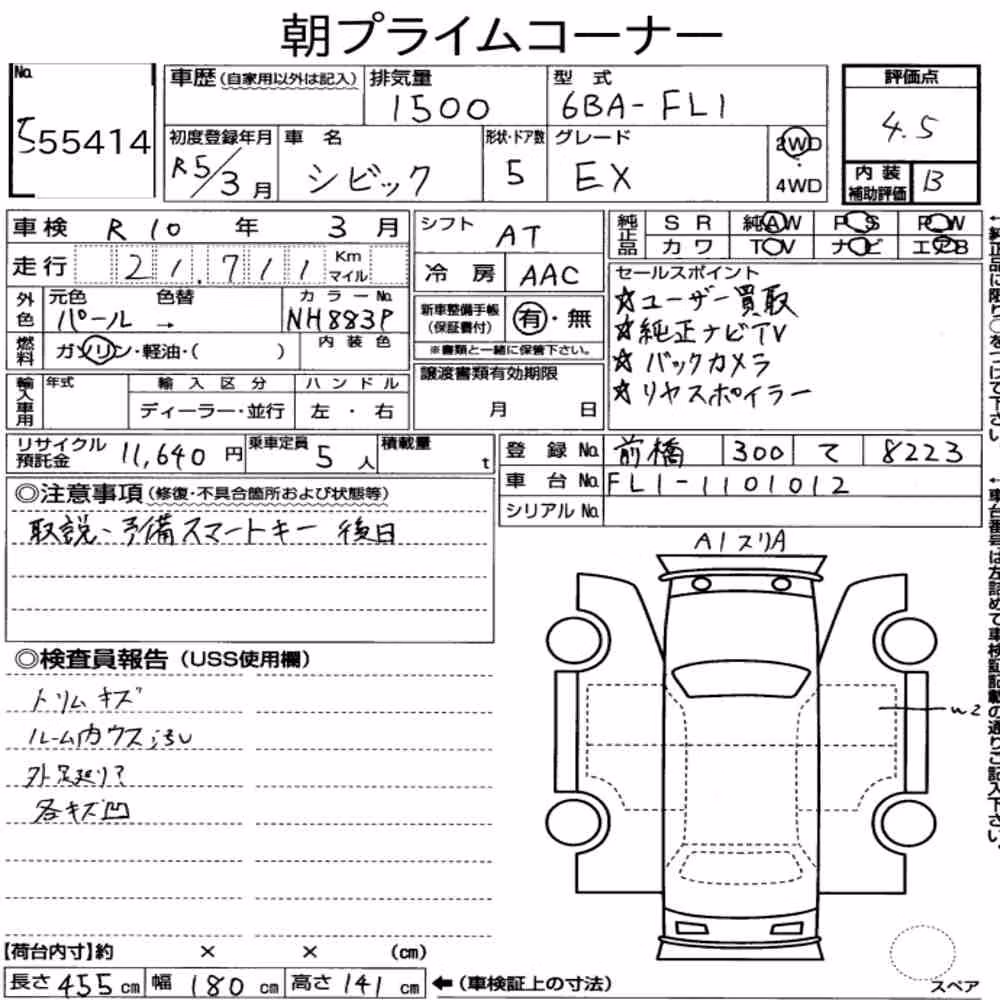 朝プライムコーナー
No.
555414
車歴(自家用以外は記入)
排気量
1500
型 式
6BA-FL1
評価点
4.5
内装補助評価 B
初度登録年月
R5/3月
車 名
シビック
形状・ドア数
5
グレード
EX
2WD
・
4WD
車検 R10 年 3 月
走行 21,711 Km マイル
シフト AT
冷 房 AAC
純正品 S R 純AW P S P W
カワ TV ナビ エアB
外色 元色 色替 カラーNo.
パール → NH883P
内装色
燃料 ガソリン・軽油・( )
新車整備手帳(保証書付) 有・無
※書類と一緒に保管下さい。
セールスポイント
☆ユーザー買取
☆純正ナビTV
☆バックカメラ
☆リヤスポイラー
輸入車用 年式 輸入区分 ハンドル
ディーラー・並行 左・右
譲渡書類有効期限
月 日
リサイクル預託金 11,640 円
乗車定員 5 人
積載量 t
登 録 No. 前橋 300 て 8223
車 台 No. FL1-1101012
シリアル No.
◎注意事項(修復・不具合箇所および状態等)
取説、予備スマートキー 後日
◎検査員報告(USS使用欄)
トリムキズ
ルーム内ウス汚レ
各キズ凹
A1スリA
W2
【荷台内寸】約 × × (cm)
長さ 455 cm 幅 180 cm 高さ 141 cm ←(車検証上の寸法)
スペア
←純正品に限り○をつけて下さい。
←車台番号は左詰めで車検証記載の通りご記入下さい。